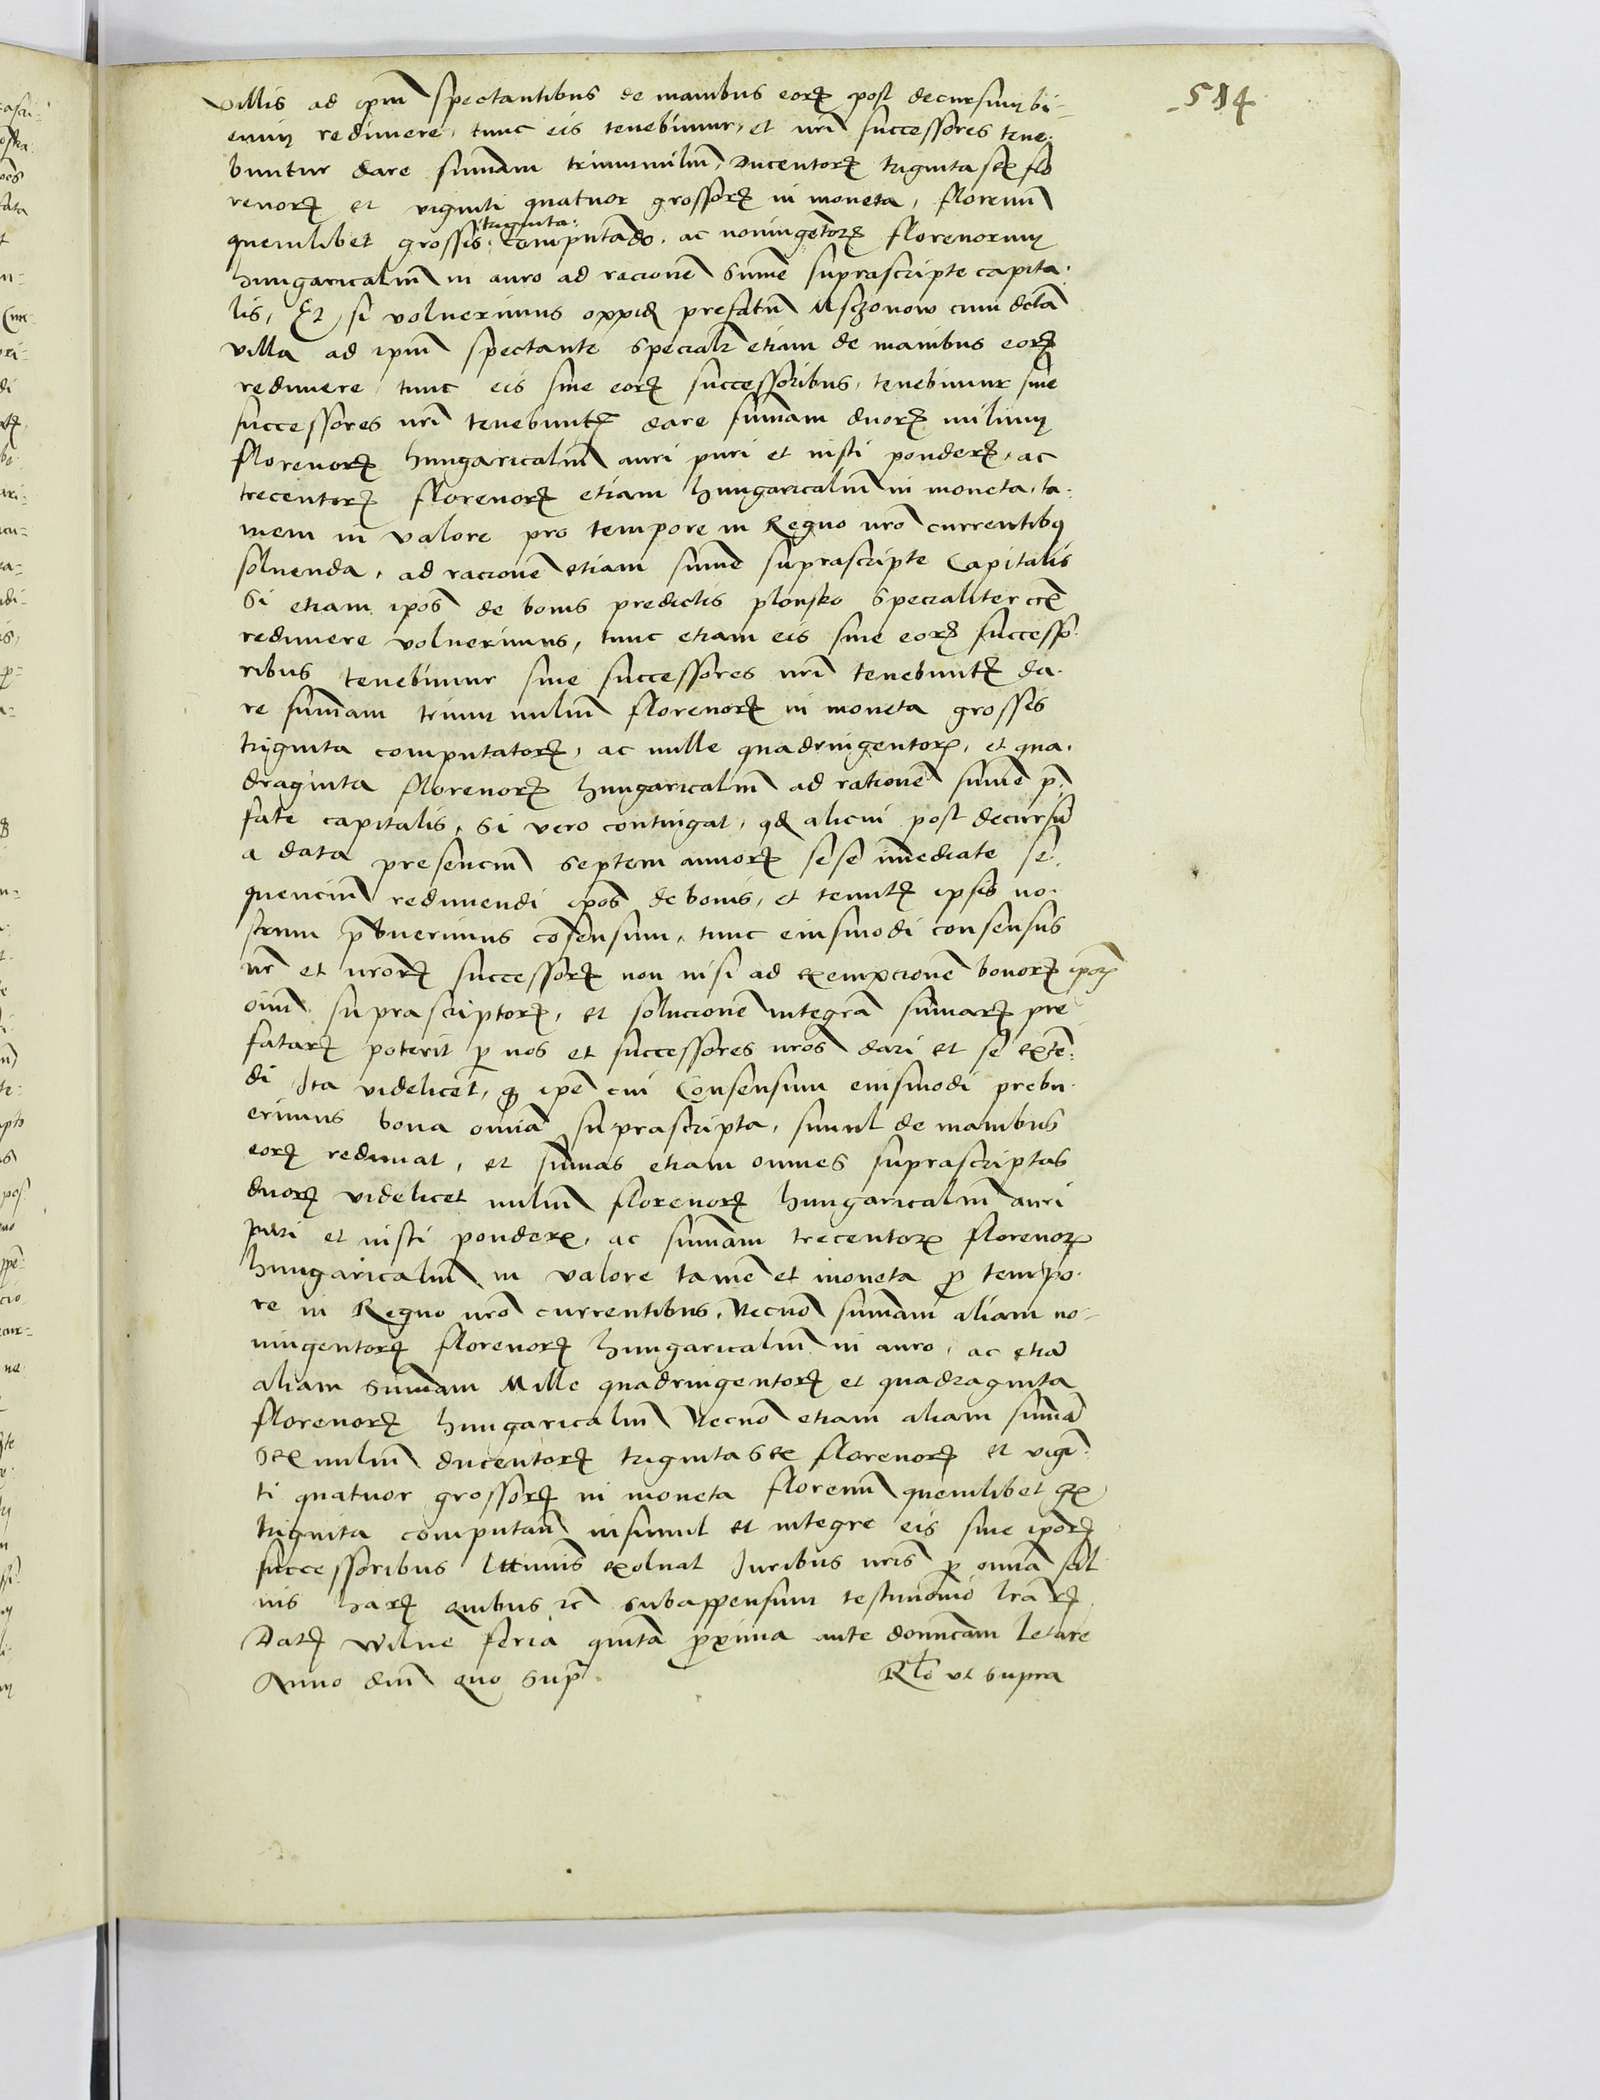 514
villis ad ipm̄ spectantibus de manibus eorꝝ post decursum bi-
enniꝯ redimere, tunc eis tenebimur, et nr̄i successores tene-
buntur dare sum̄am triummiliū, Ducentorꝝ triginta sex flo
renorꝝ et viginti quatuor grossorꝝ in moneta, florenū
quemlibet grossis triginta computādo, ac noningētorꝝ florenorum
hungaricaliū in auro ad racionē sum̄e suprascripte capita-
lis, Et si voluerimus oppidꝫ prefatū Msczonow cum dictā
villa ad ipm̄ spectante specialr̄ etiam de manibus eorꝝ
redimere, tunc eis siue eorꝝ successoribus, tenebimur siue
successores nr̄i tenebuntꝝ dare sum̄am duorꝝ milium
florenorꝝ hungaricaliū auri puri et iusti ponderꝝ, ac
trecentorꝝ florenorꝝ etiam hungaricaliū in moneta, ta-
men in valore pro tempore in Regno nr̄o currentibꝰ
soluenda, ad racionē etiam sum̄e suprascripte Capitalis
Si etiam ip̄os de bonis predictis plonsko specialiter
redimere voluerimus, tunc etiam eis siue eorꝝ successo-
ribus tenebimur siue successores nr̄i tenebuntꝝ da-
re sum̄am trium miliū florenorꝝ in moneta grossis
triginta computatorꝝ, ac mille quadringentorꝝ, et qua-
draginta florenorꝝ hungaricaliū ad rationē sum̄e p̄-
fate capitalis, Si vero contingat, qꝫ alicui post decursū
a data presenciū septem annorꝝ sese im̄ediate se-
quenciū redimendi ip̄os de bonis, et tenutꝝ ipsis no-
strum p̄buerimus cōsensum, tunc eiusmodi consensus
nr̄ et nr̄orꝝ successorꝝ non nisi ad exempcionē bonorꝝ ip̄orꝝ
oīm suprascriptorꝝ, et solucionē integrā sum̄arꝝ pre
fatarꝝ poterit ꝑ nos et successores nr̄os dari et se extē-
di Ita videlicet, ꝙ ip̄e cui Consensum eiusmodi prebu-
erimus bona omīa suprascripta, simul de manibus
eorꝝ redimat, et sum̄as etiam omnes suprascriptas
duorꝝ videlicet miliū florenorꝝ hungaricaliū auri
puri et iusti ponderꝝ, ac sum̄am trecentorꝝ florenorꝝ
hungaricaliū in valore tamē et moneta ꝓ tempo-
re in Regno nr̄o currentibus, Necnō sum̄am aliam no-
ningentorꝝ florenorꝝ hungaricaliū in auro, ac etiā
aliam sum̄am Mille quadringentorꝝ et quadraginta
florenorꝝ hungaricaliū Necnō etiam aliam sum̄ā
sex miliū ducentorꝝ triginta sex florenorꝝ et vigī-
ti quatuor grossorꝝ in moneta florenū quemlibet
triginta computan̄ insimul et integre eis siue ip̄orꝝ
successoribus lttimis exoluat Iuribus nr̄is ꝑ omīa sal
uis harꝝ quibus ꝛc̄ subappensum testimonio lr̄arꝝ
Datꝝ Wilne feria quīta ꝓxima ante domīcam letare
Anno dnī quo sup̄
Rlō vt supra